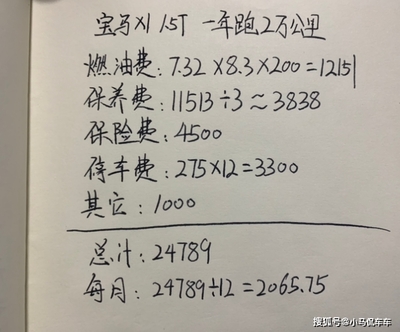 宝马X1 1.5T 一年跑2万公里
燃油费：7.32×8.3×200=12151
保养费：11513÷3≈3838
保险费：4500
停车费：275×12=3300
其它：1000
总计：24789
每月：24789÷12=2065.75
搜狐号@小马侃车车